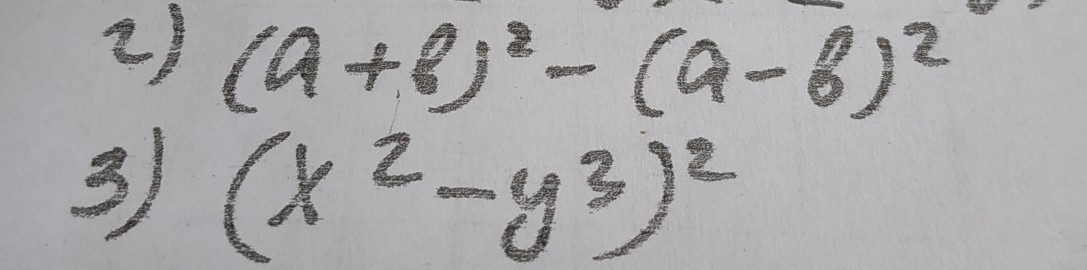 2) (a + b)² - (a - b)²
3) (x² - y³)²